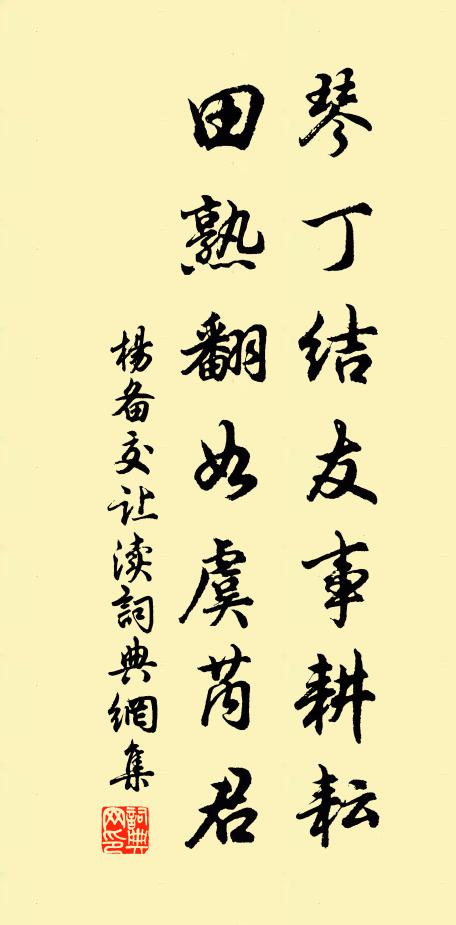 琴丁结友事耕耘
田熟翻如虞芮君
杨备交让渎詞典網集
詞典网印